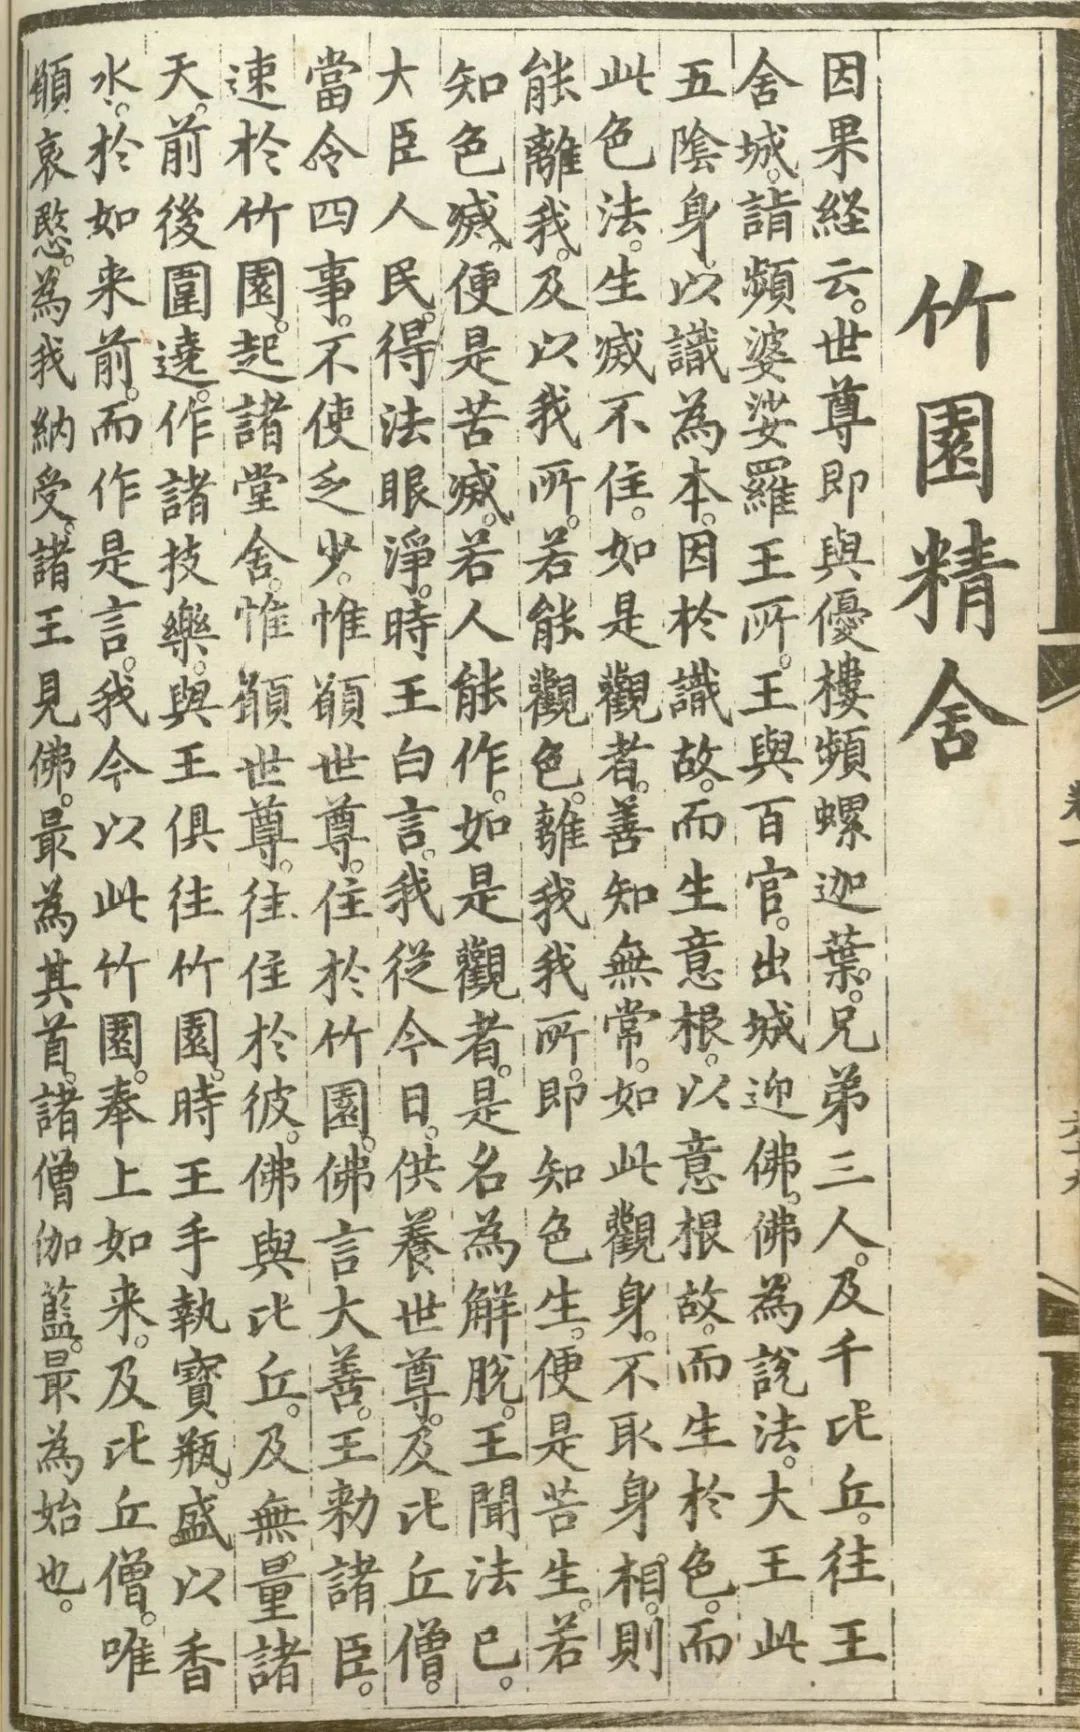 竹園精舍
因果経云。世尊即與優樓頻螺迦葉。兄弟三人。及千比丘。往王
舍城。詣頻婆娑羅王所。王與百官。出城迎佛。佛為說法。大王此
五陰身。以識為本。因於識故。而生意根。以意根故。而生於色。而
此色法。生滅不住。如是觀者。善知無常。如此觀身。不取身相。則
能離我。及以我所。若能觀色。離我我所。即知色生。便是苦生。若
知色滅。便是苦滅。若人能作。如是觀者。是名為解脫。王聞法已。
大臣人民。得法眼淨。時王白言。我從今日。供養世尊。及比丘僧。
當令四事。不使乏少。惟願世尊。住於竹園。佛言大善。王勑諸臣。
速於竹園。起諸堂舍。惟願世尊。往住於彼。佛與比丘。及無量諸
天。前後圍遶。作諸技樂。與王俱往竹園。時王手執寶瓶。盛以香
水。於如来前。而作是言。我今以此竹園。奉上如来。及比丘僧。唯
願哀愍。為我納受。諸王見佛。最為其首。諸僧伽藍。最為始也。
卷一
六十九